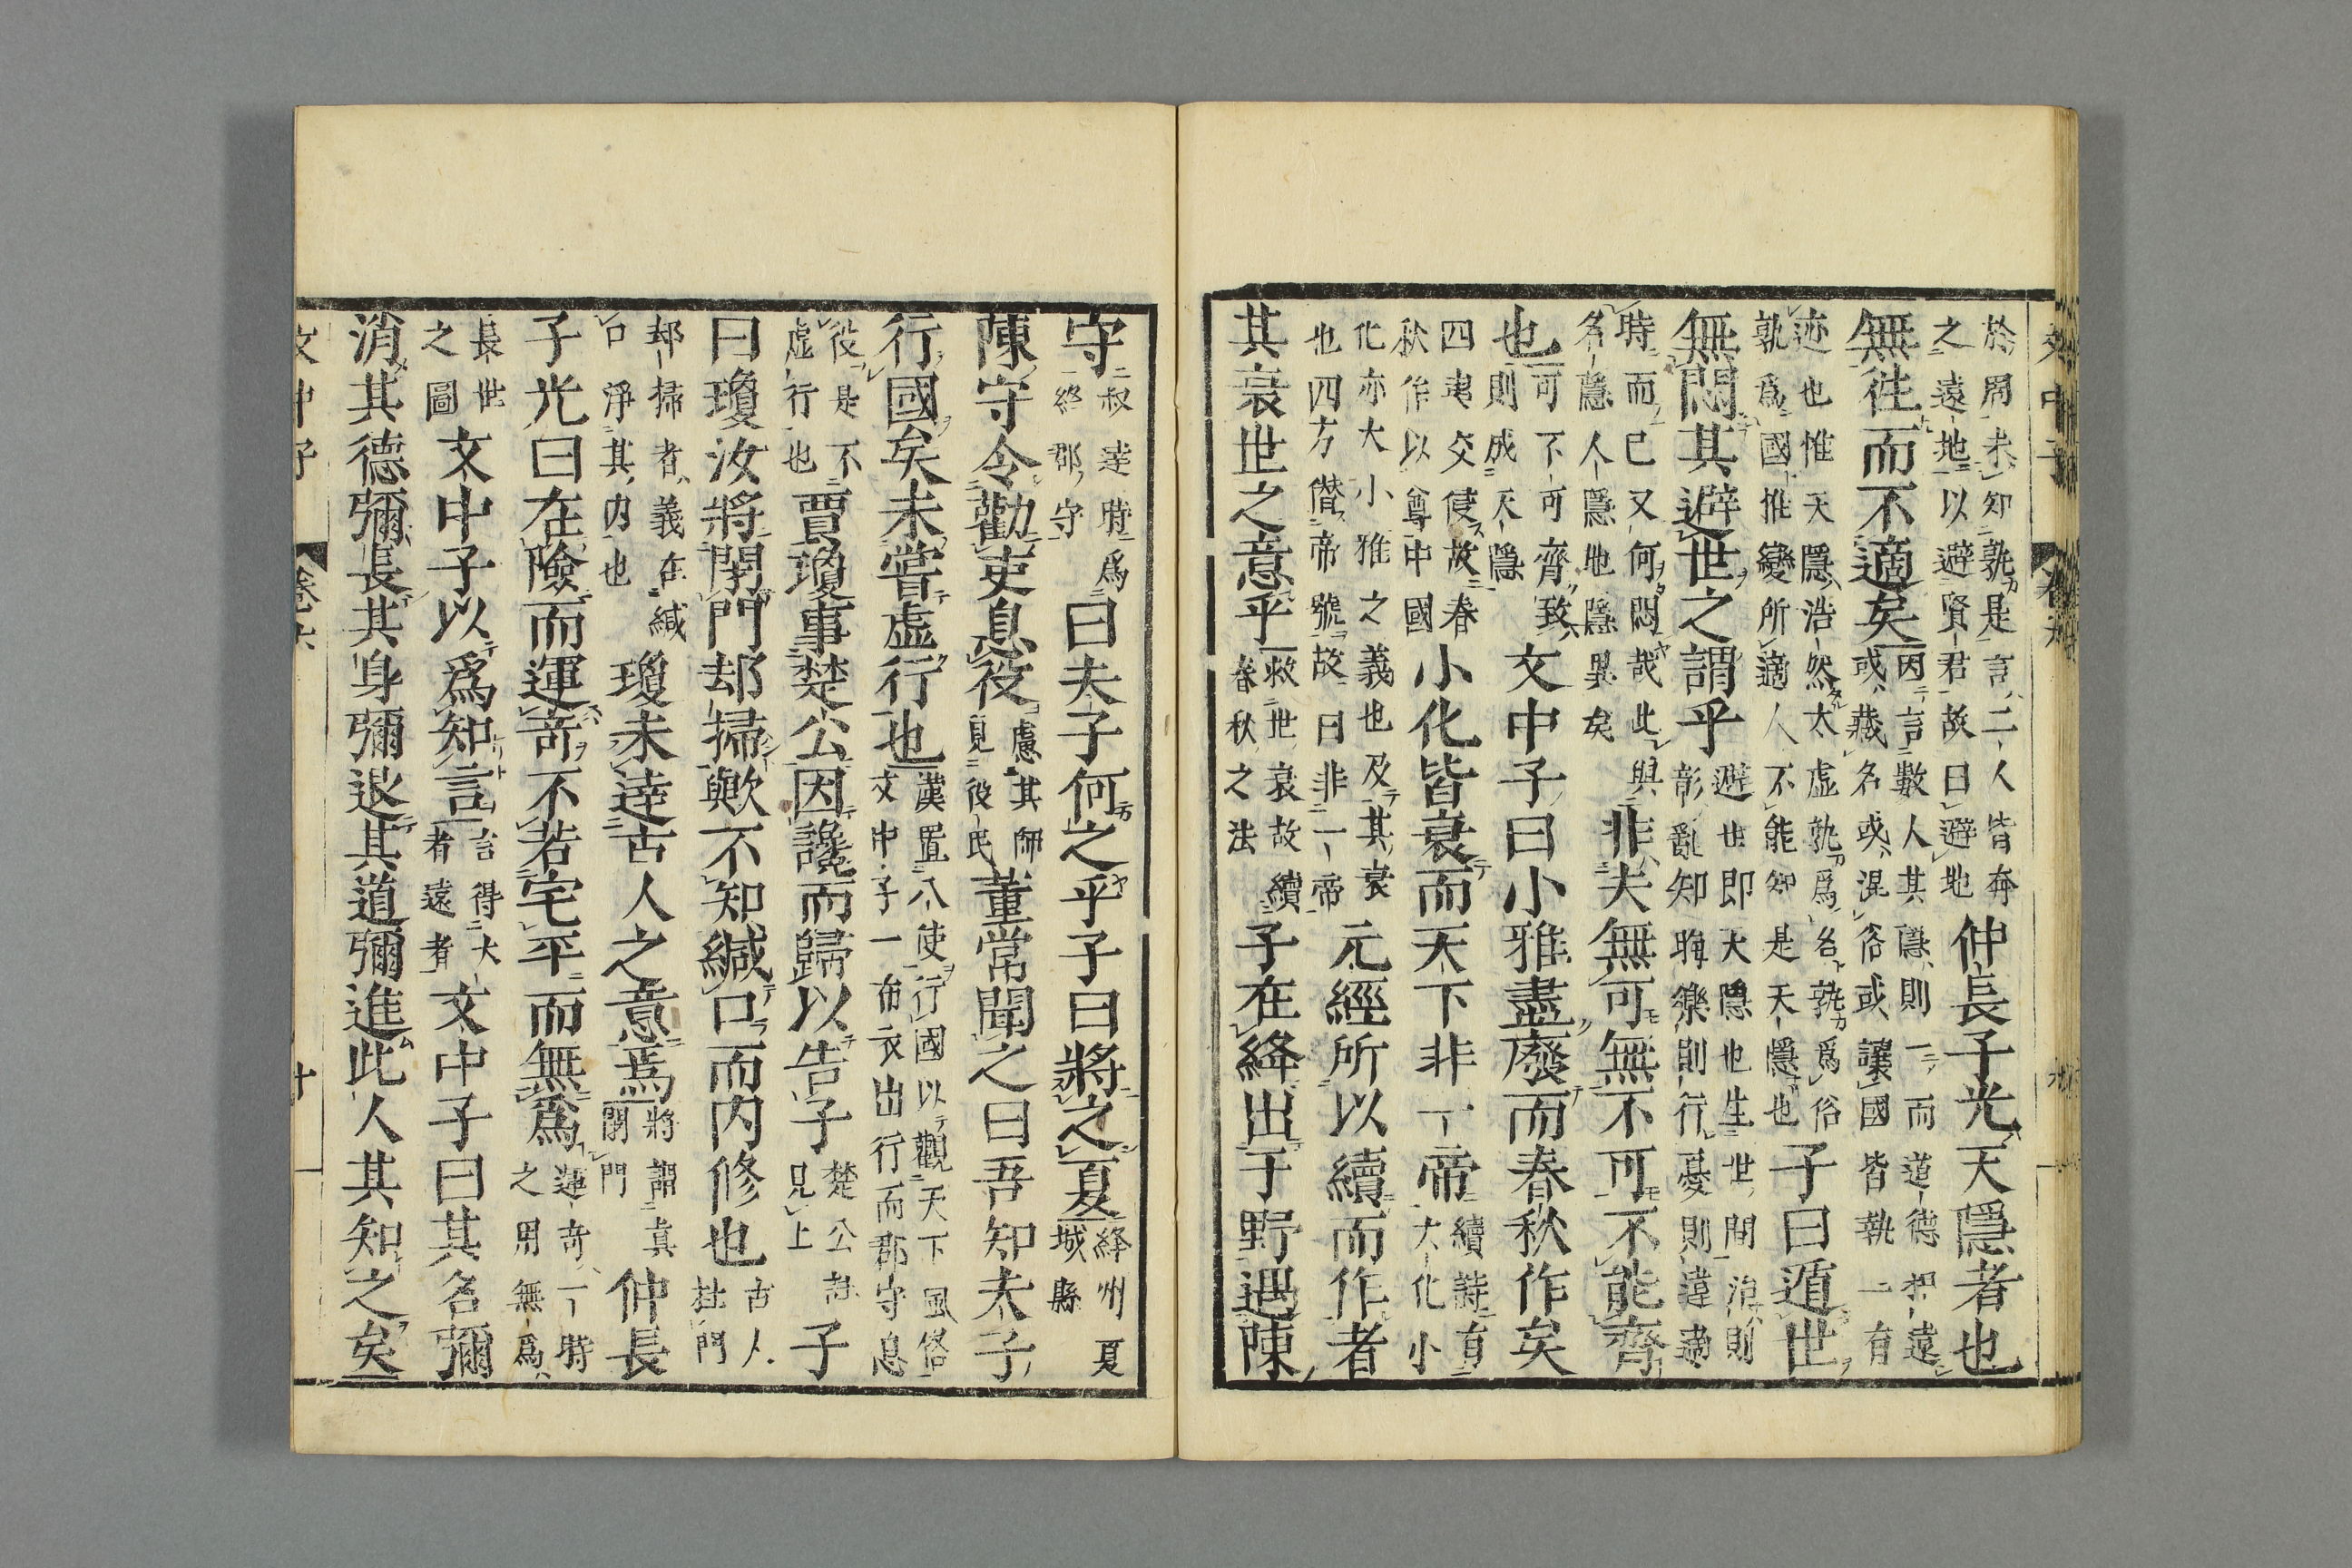 文中子 卷六 九
於周未知孰是言二人皆奔
之遠地以避賢君故曰避地
仲長子光天隱者也
無徃而不適矣
因言數人其隱則一而道德相遠
或藏名或混俗或讓國皆執一有
迹也惟天隱浩然太虛孰爲名孰爲俗
孰爲國惟變所適人不能知是天隱也
子曰遁世
無悶其避世之謂乎
避世即大隱也生世間治則
彰亂知晦樂則行憂則違適
時而已又何悶哉此與
名隱人隱地隱異矣
非夫無可無不可不能齊
也
可不可齊致
則成天隱
文中子曰小雅盡廢而春秋作矣
四夷交侵故春
秋作以尊中國
小化皆衰而天下非一帝
續詩有
大化小
化亦大小雅之義也及其衰
也四方僣帝號故曰非一帝
元經所以續而作者
其衰世之意乎
救世衰故續
春秋之法
子在絳出于野遇陳
守
叔逹時爲
絳郡守
曰夫子何之乎子曰將之夏
絳州夏
城縣
陳守令勸吏息役
慮其師
見役民
董常聞之曰吾知夫子
行國矣未嘗虛行也
漢置八使行國以觀天下風俗
文中子一布衣出行而郡守息
役是不
虛行也
賈瓊事楚公因讒而歸以告子
楚公
見上
子
曰瓊汝將閉門却掃歟不知緘口而内修也
古人
杜門
却掃者義在緘
口淨其内也
瓊未逹古人之意焉
將謂真
閉門
仲長
子光曰在險而運奇不若宅平而無爲
運奇一時
之用無爲
長世
之圖
文中子以爲知言
言得大
者遠者
文中子曰其名彌
消其德彌長其身彌退其道彌進此人其知之矣
文中子 卷六 十